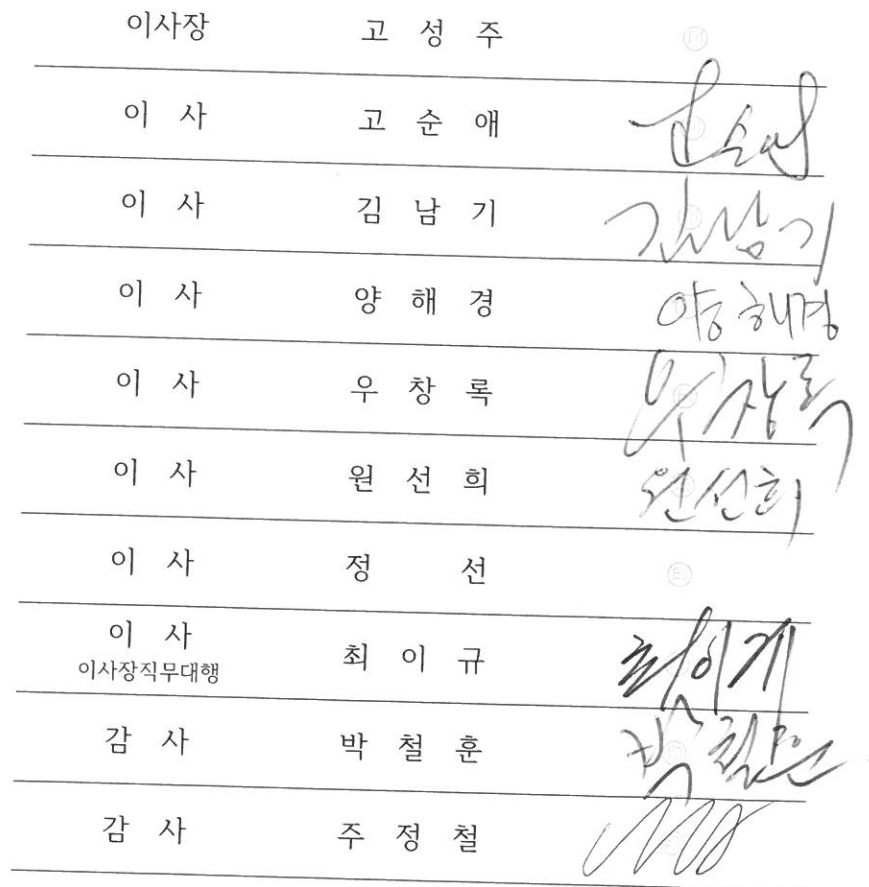 이사장 고 성 주 ㊞
이 사 고 순 애 고순애
이 사 김 남 기 김남기
이 사 양 해 경 양해경
이 사 우 창 록 우창록
이 사 원 선 희 원선희
이 사 정 선 ㊞
이 사
이사장직무대행 최 이 규
감 사 박 철 훈 박철훈
감 사 주 정 철